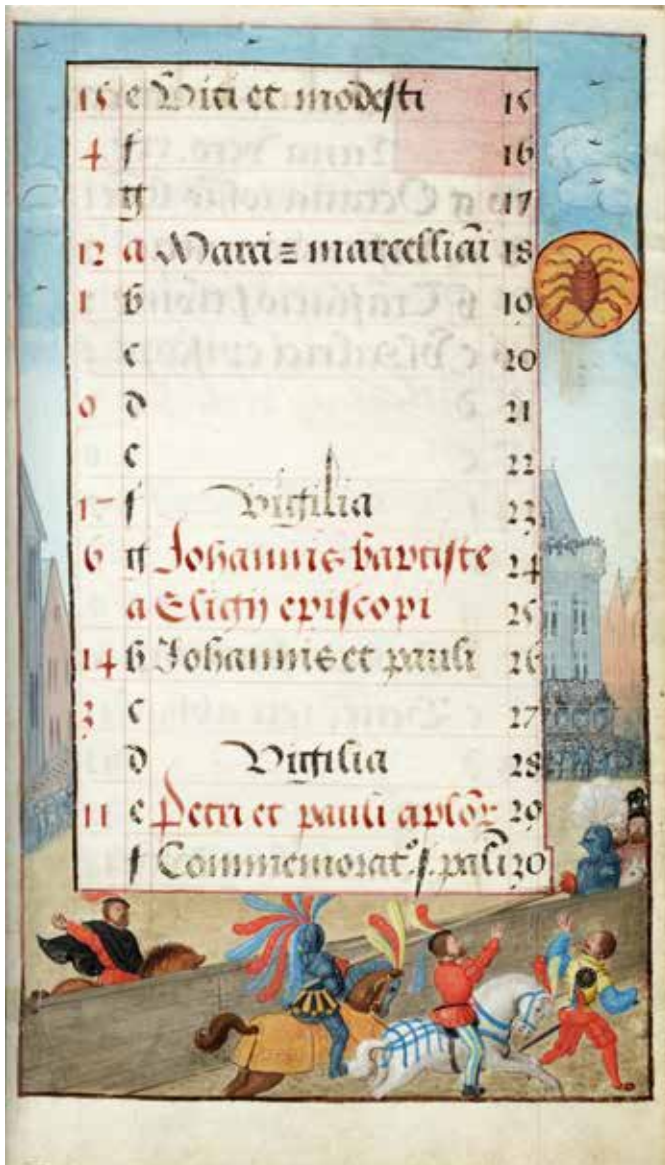 15 e Viti et modesti 15
4 f 16
g 17
12 a Marci z marcelliai 18
1 b 19
c 20
9 d 21
e 22
17 f Vigilia 23
6 g Johannis baptiste 24
a Eligii episcopi 25
14 b Johannis et pauli 26
3 c 27
d Vigilia 28
11 e Petri et pauli aplor 29
f Commemorat. s. pauli 30